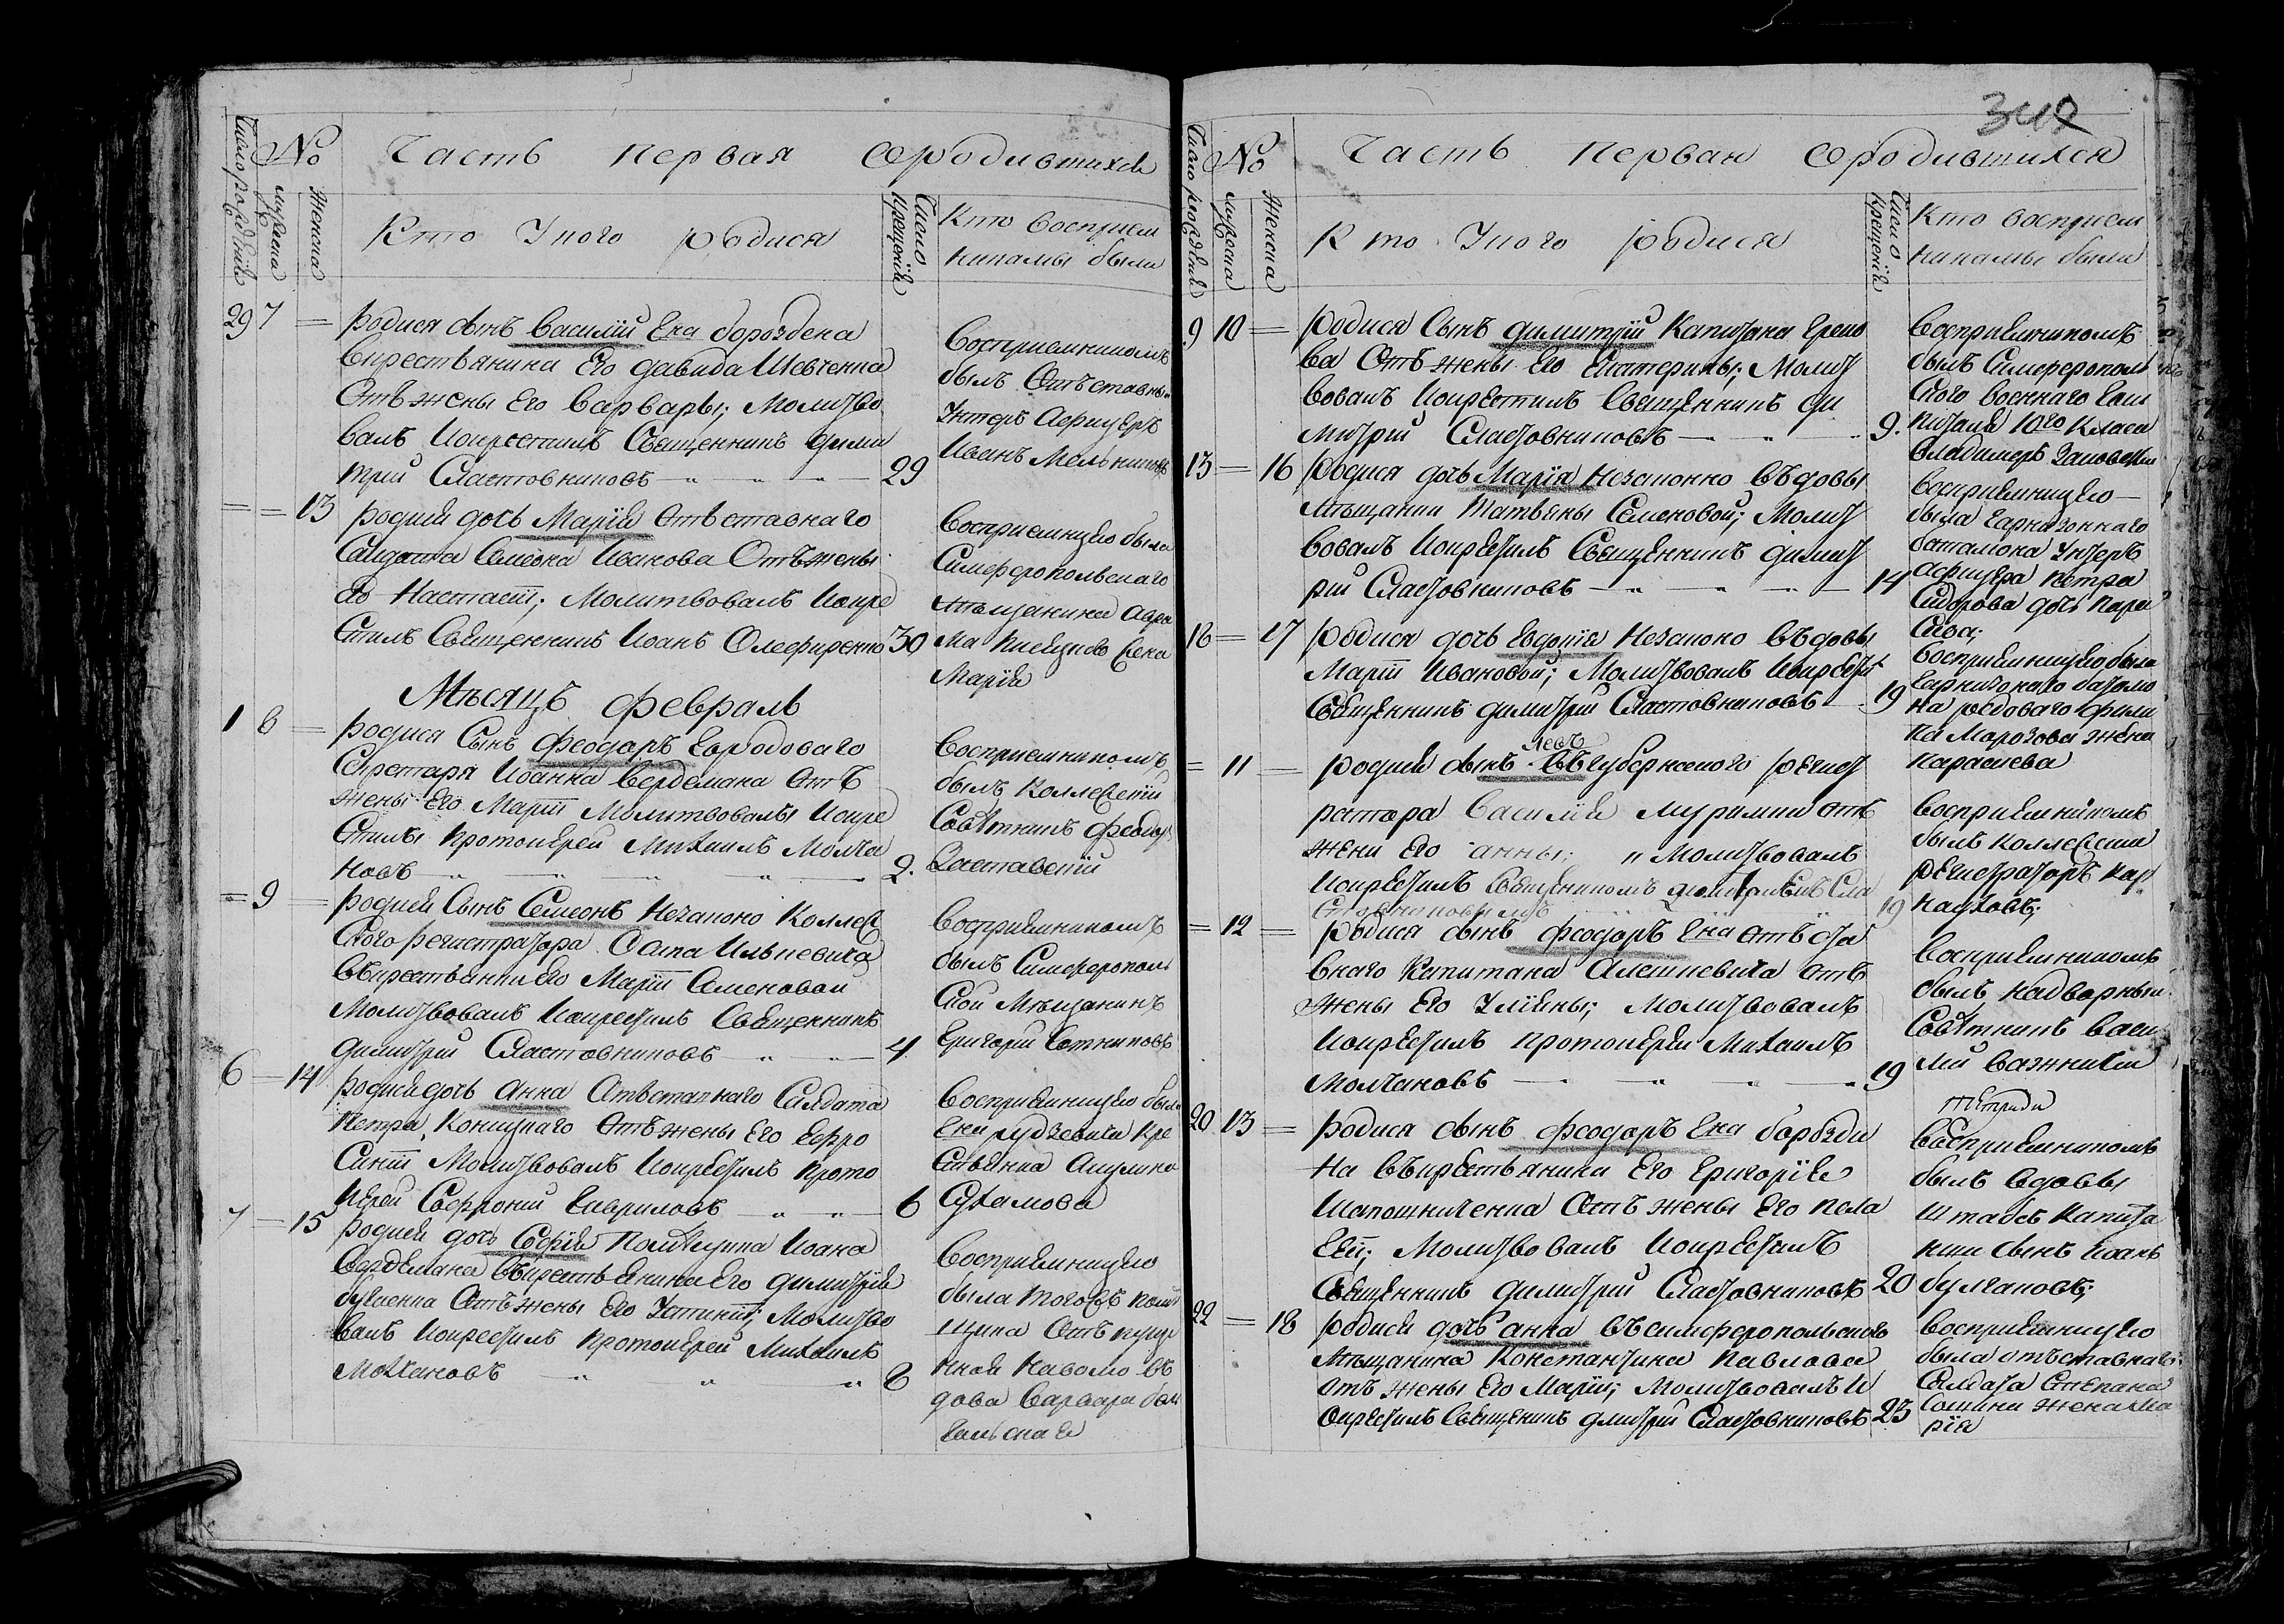 № Часть первая ородившихся
Число рожденiй
мужеска
женска
Кто Укого родися
Число крещенiй
Кто восприем
никамы были
29 7 — родися сынъ Василiй Ека бороздена
Вкрестьянина Его Давида Шевченка
Отъ жены Его Варвары; Молитво
валъ Иокрестилъ Священникъ Дими
трий Сластовниковъ 29
Восприемникомъ
былъ Отъставны
Унтеръ Афицеръ
Иванъ Мельников
= = 13 родися дочь Марiя Отъставнаго
Салдата Семеона Иванова Отъжены
Его Настасiи; Молитвовалъ Иокре
стилъ Священникъ Иоанъ Олефиренко 30
Восприемницею была
Симферопольскаго
Мъщанина Авра
ма жена
Марiя
Мъсяцъ февраль
1 8 — родися Сынъ Феодоръ Городоваго
Секретаря Иоанна Вердемана Отъ
жены Его Марiи Молитвовалъ Иокре
стилъ Протоиерей Михаилъ Молча
новъ 2.
Восприемникомъ
былъ Коллескiй
Совътникъ Феодор
Заставскiй
= 9 — родися Сынъ Семеонъ Незаконо Коллес
скаго регистратора
Въкрестьянки Его Марiи Семеновой
Молитвовалъ Иокрестилъ Священникъ
Димитрий Сластовниковъ 4
Восприемникомъ
былъ Симферополь
ской Мъщанинъ
Григорий Сотниковъ
6 — 14 родися дочь Анна Отъставнаго Салдата
Петра Коницкаго Отъ жены Его Ефро
синiи Молитвовалъ Иокрестилъ Прото
иерей Софроний Гавриловъ 6
Восприемницею была
Кре
стьянка Акулина
Сухамова
7 — 15 родися дочь Софiя Помъщика Иоана
Вердемана Въкрестьянина Его Димитрiя
Отъ жены Его Устинiи; Молитво
валъ Иокрестилъ Протоиерей Михаилъ
Молчановъ 8
Восприемницею
была Тогожъ Помъ
щика
въ
дова Варвара

349
№ Часть первая ородившихся
Число рожденiй
мужеска
женска
Кто Укого родися
Число крещенiй
Кто восприем
никамы были
9 10 — родися Сынъ Димитрiй Капитана Греко
ва Отъ жены Его Екатерины; Молит
вовалъ Иокрестилъ Священникъ Ди
митрий Сластовниковъ 9.
Восприемникомъ
былъ Симферополь
скаго военнаго гош
питаля 10го Класа
Владимеръ
13 — 16 родися дочь Марiя Незаконно въдовы
Мъщанки Татьяны Семеновой; Молит
вовалъ Иокрестилъ Священникъ Димит
рий Сластовниковъ 14
Восприемницею
была гарнизоннаго
баталиона Унтеръ
афицера Петра
Сидорова дочь Пара
скева;
18 — 17 родися дочь Евдокiя Незаконо въдовы
Марiи Ивановой; Молитвовалъ Иокрестил
Священникъ Димитрий Сластовниковъ 19
Восприемницею была
гарнизонаго баталио
на редоваго Фили
па Марозова жена
Параскева
= 11 — родися сынъ Левъ губернскаго регист
ратора Василiя Муралии отъ
жени Его анны; Молитвовалъ
Иокрестилъ Священникомъ Димитриемъ Сла
стовниковымъ 19
Восприемникомъ
былъ Коллескаи
регистраторъ Кар
= 12 — родися сынъ Феодоръ Ека Отъста
внаго Капитана Алешкевича отъ
жены Его Улiяны; Молитвовалъ
Иокрестилъ Протоиереи Михаилъ
Молчановъ 19
Восприемникомъ
былъ Надворныи
Совътникъ Васи
лий
20 13 — родися сынъ Феодоръ Ека борозди
на въкрестьянина Его Григорiя
Шапошниченка Отъ жены Его Пела
геи; Молитвовалъ Иокрестилъ
Священникъ Димитрий Сластовниковъ 20
Восприемникомъ
былъ вдовы
Штабсъ Капита
нши сынъ Иоанъ
Булгаковъ;
22 — 18 родися дочь анна въсимферопольскаго
Мъщанина Константина Павлова
отъ жены Его Марiи; Молитвовалъ И
окрестилъ Священикъ Дмитрий Сластовниковъ 23
Восприемницею
была отъставнаго
Салдата Степана
Сомина жена Ма
рiя